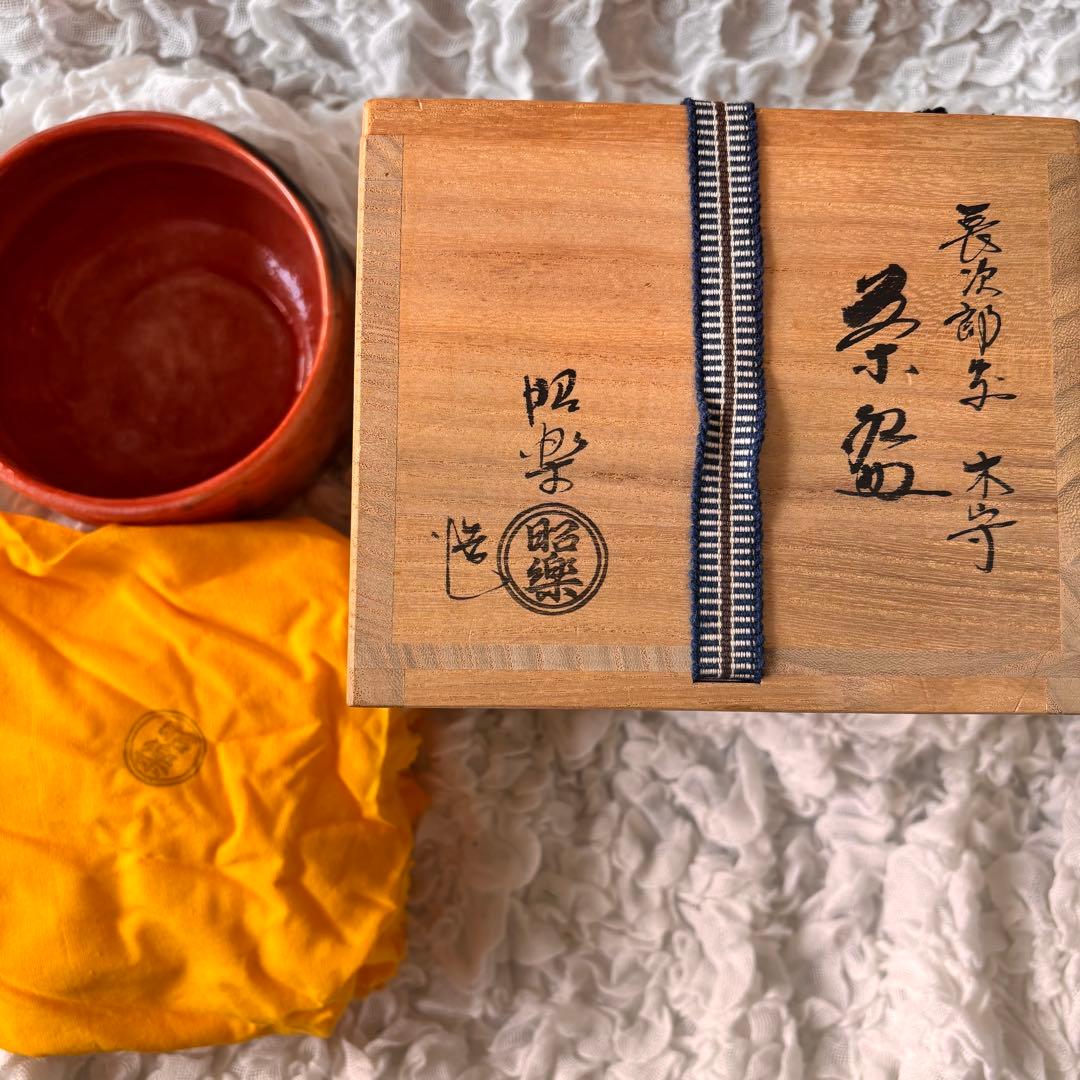 長次郎写 木守
茶盌
昭楽
造
昭樂